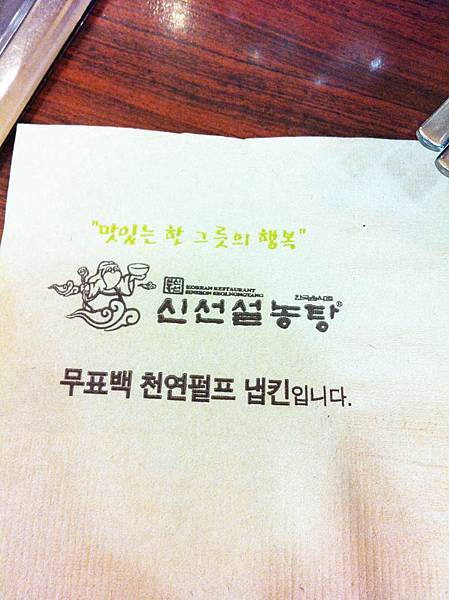 "맛있는 한 그릇의 행복"
KOREAN RESTAURANT
SINSEON SEOLNONGTANG
신선설농탕®
무표백 천연펄프 냅킨입니다.